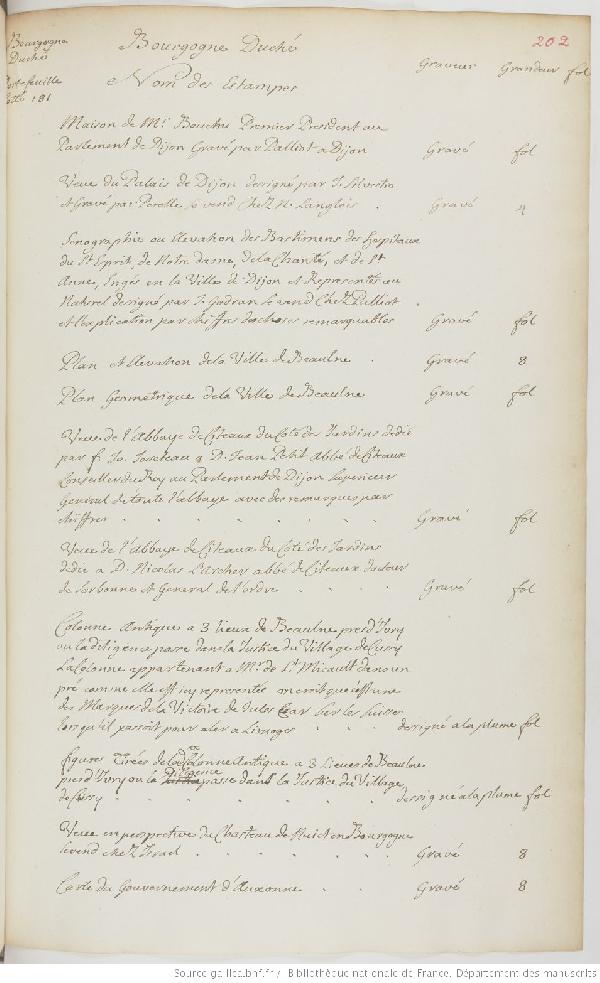 Bourgogne Duché
202
Bourgogne
Duché
Portefeuille
181
Nom des Estampes
Graveur Grandeur fol
Maison de Mr. Bouchu Premier President au
Parlement de Dijon Gravé par Palliot a Dijon Gravé fol
Veue du Palais de Dijon designé par J. Silvestre
et Gravé par Perelle se vend Chez N. Langlois Gravé 4
Senographie ou Elevation des Bastimens des Hopitaux
du St Esprit, de Notre dame, de la Charité, et de Ste
Anne, Erigés en la Ville de Dijon et Representés au
Naturel designé par J. Godran se vend Chez Palliot
et l'explication par chiffres des choses remarquables Gravé fol
Plan et Elevation de la Ville de Beaulne Gravé 8
Plan Geometrique de la Ville de Beaulne Gravé fol
Veue de l'Abbaye de Citeaux du Coté des Jardins dedié
par f. Jo. a D. Jean Petit abbé de Citeaux
Conseiller du Roy au Parlement de Dijon Superieur
General de toute l'abbaye avec des remarques par
chiffres Gravé fol
Veue de l'Abbaye de Citeaux du Coté des Jardins
dedié a D. Nicolas Larcher abbé de Citeaux docteur
de Sorbonne et General de l'ordre Gravé fol
Colonne Antique a 3 lieux de Beaulne pres d'Ivry
ou la diligence passe dans la Justice du Village de Cussy
La Colonne appartenant a Mr. de St Micault dans un
pré comme elle est icy representée on croit que c'est une
des Marques de la Victoire de Jules Cesar sur les Suisses
lorsqu'il passoit pour aler a Limoges designé a la plume fol
figures Tirées de la Colonne Antique a 3 Lieues de Beaulne
pres d'Ivry ou la Diligence passe dans la Justice du Village
de Cussy designé a la plume fol
Veue en perspective du Chasteau de en Bourgogne
se vend chez Israel Gravé 8
Carte du Gouvernement d'Auxonne Gravé 8
Source gallica.bnf.fr / Bibliothèque nationale de France. Département des manuscrits